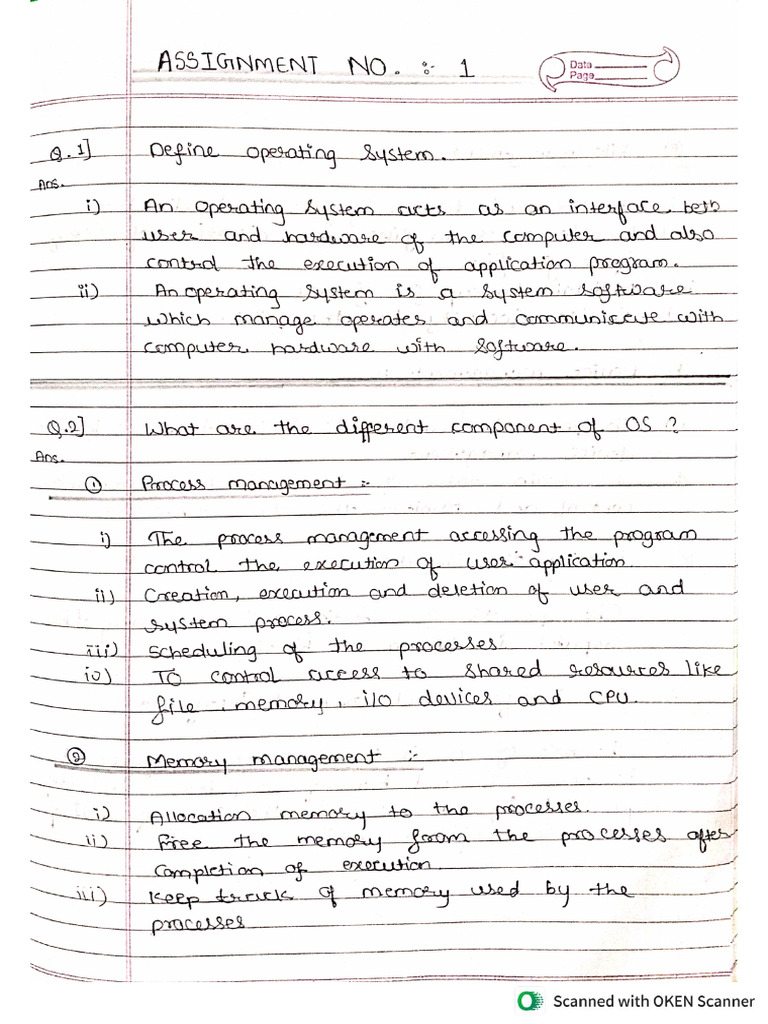 ASSIGNMENT NO. :- 1
Date
Page
Q.1] Define operating system.
Ans.
i) An operating system acts as an interface betn
user and hardware of the computer and also
control the execution of application program.
ii) An operating system is a system software
which manage operates and communicate with
computer hardware with software.
Q.2] What are the different component of OS ?
Ans.
① Process management :-
i) The process management accessing the program
control the execution of user application
ii) Creation, execution and deletion of user and
system process.
iii) Scheduling of the processes
iv) To control access to shared resources like
file, memory, i/o devices and CPU.
② Memory management :-
i) Allocation memory to the processes.
ii) Free the memory from the processes after
completion of execution
iii) Keep track of memory used by the
processes
Scanned with OKEN Scanner